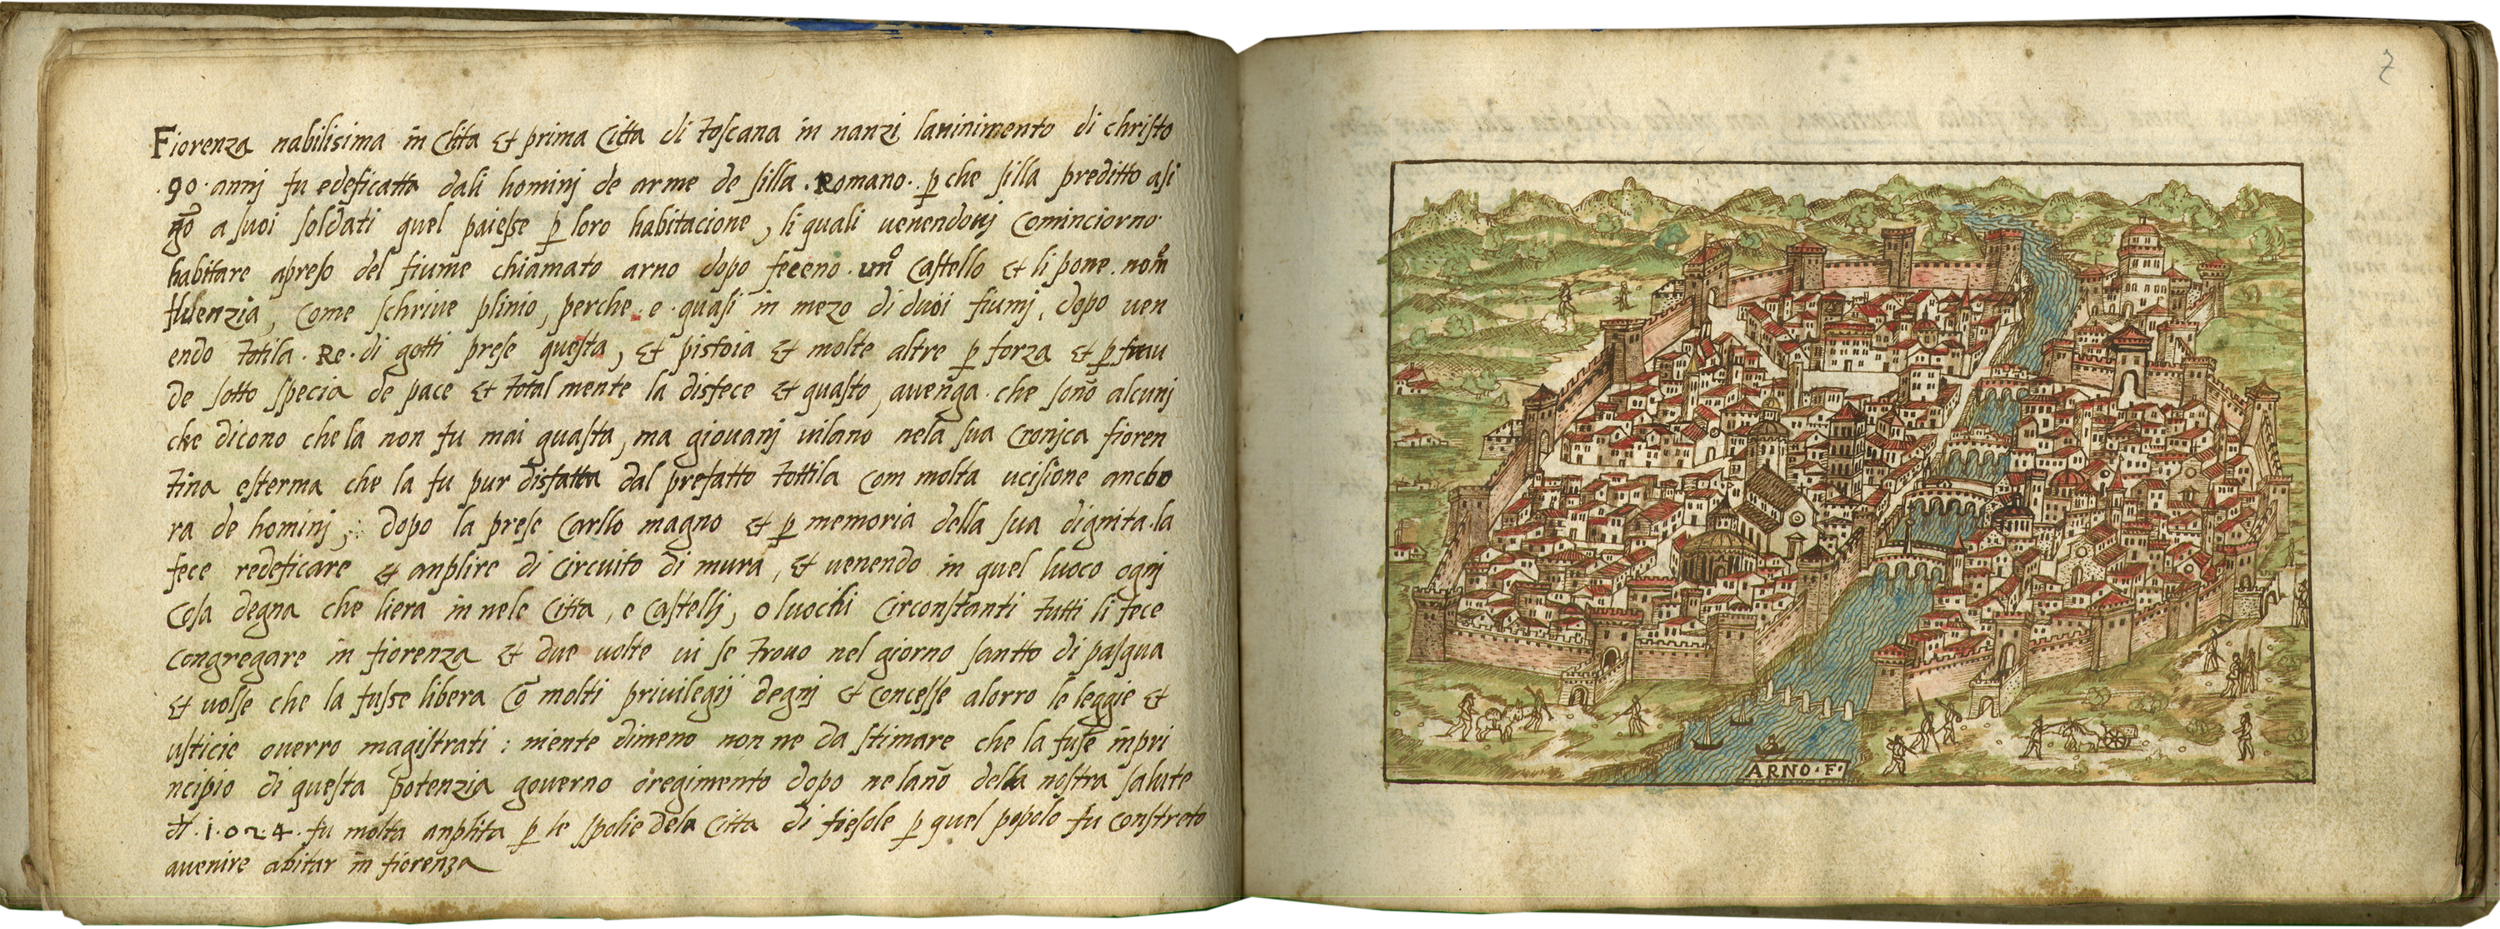 Fiorenza nabilisima in Citta et prima Citta di toscana in nanzi lavinimento di christo
.90. annj fu edeficatta dali hominj de arme de silla . Romano . p che silla preditto asi
gno a suoi soldati quel paiesse p loro habitacione, li quali venendovj Cominciorno
habitare apreso del fiume chiamato arno dopo feceno . uno Castello et li pone . nom
fulenzia, Come schrive plinio, perche e quasi in mezo di duoi fiumj, dopo ven
endo totila . Re . di gotti prese questa, et pistoia et molte altre p forza et p frau
de sotto specia de pace et total mente la disfece et guasto, avenga che sono alcunj
che dicono che la non fu mai guasta, ma giovanj vilano nela sua Cronjca fioren
tina esterma che la fu pur disfatta dal prefatto tottila Com molta ucisione ancho
ra de hominj, : dopo la prese Carllo magno et p memoria della sua dignita la
fece redeficare et anplire di Circuito di mura, et venendo in quel luoco ognj
Cosa degna che liera in nele Citta, e Castellj, o luochi Circonstanti tutti li fece
Congregare in fiorenza et due volte vi se trovo nel giorno santto di pasqua
et volse che la fusse libera Co molti privilegij degnj et Concesse alorro le leggie et
usticie overro magistrati : niente dimeno non ne da stimare che la fuse in pri
ncipio di questa potenzia governo o regimento dopo ne lano della nostra salute
di . 1024 . fu molta anplita p le spolie dela Citta di fiesole p quel popolo fu Constreto
avenire abitar in fiorenza
7
ARNO . F .